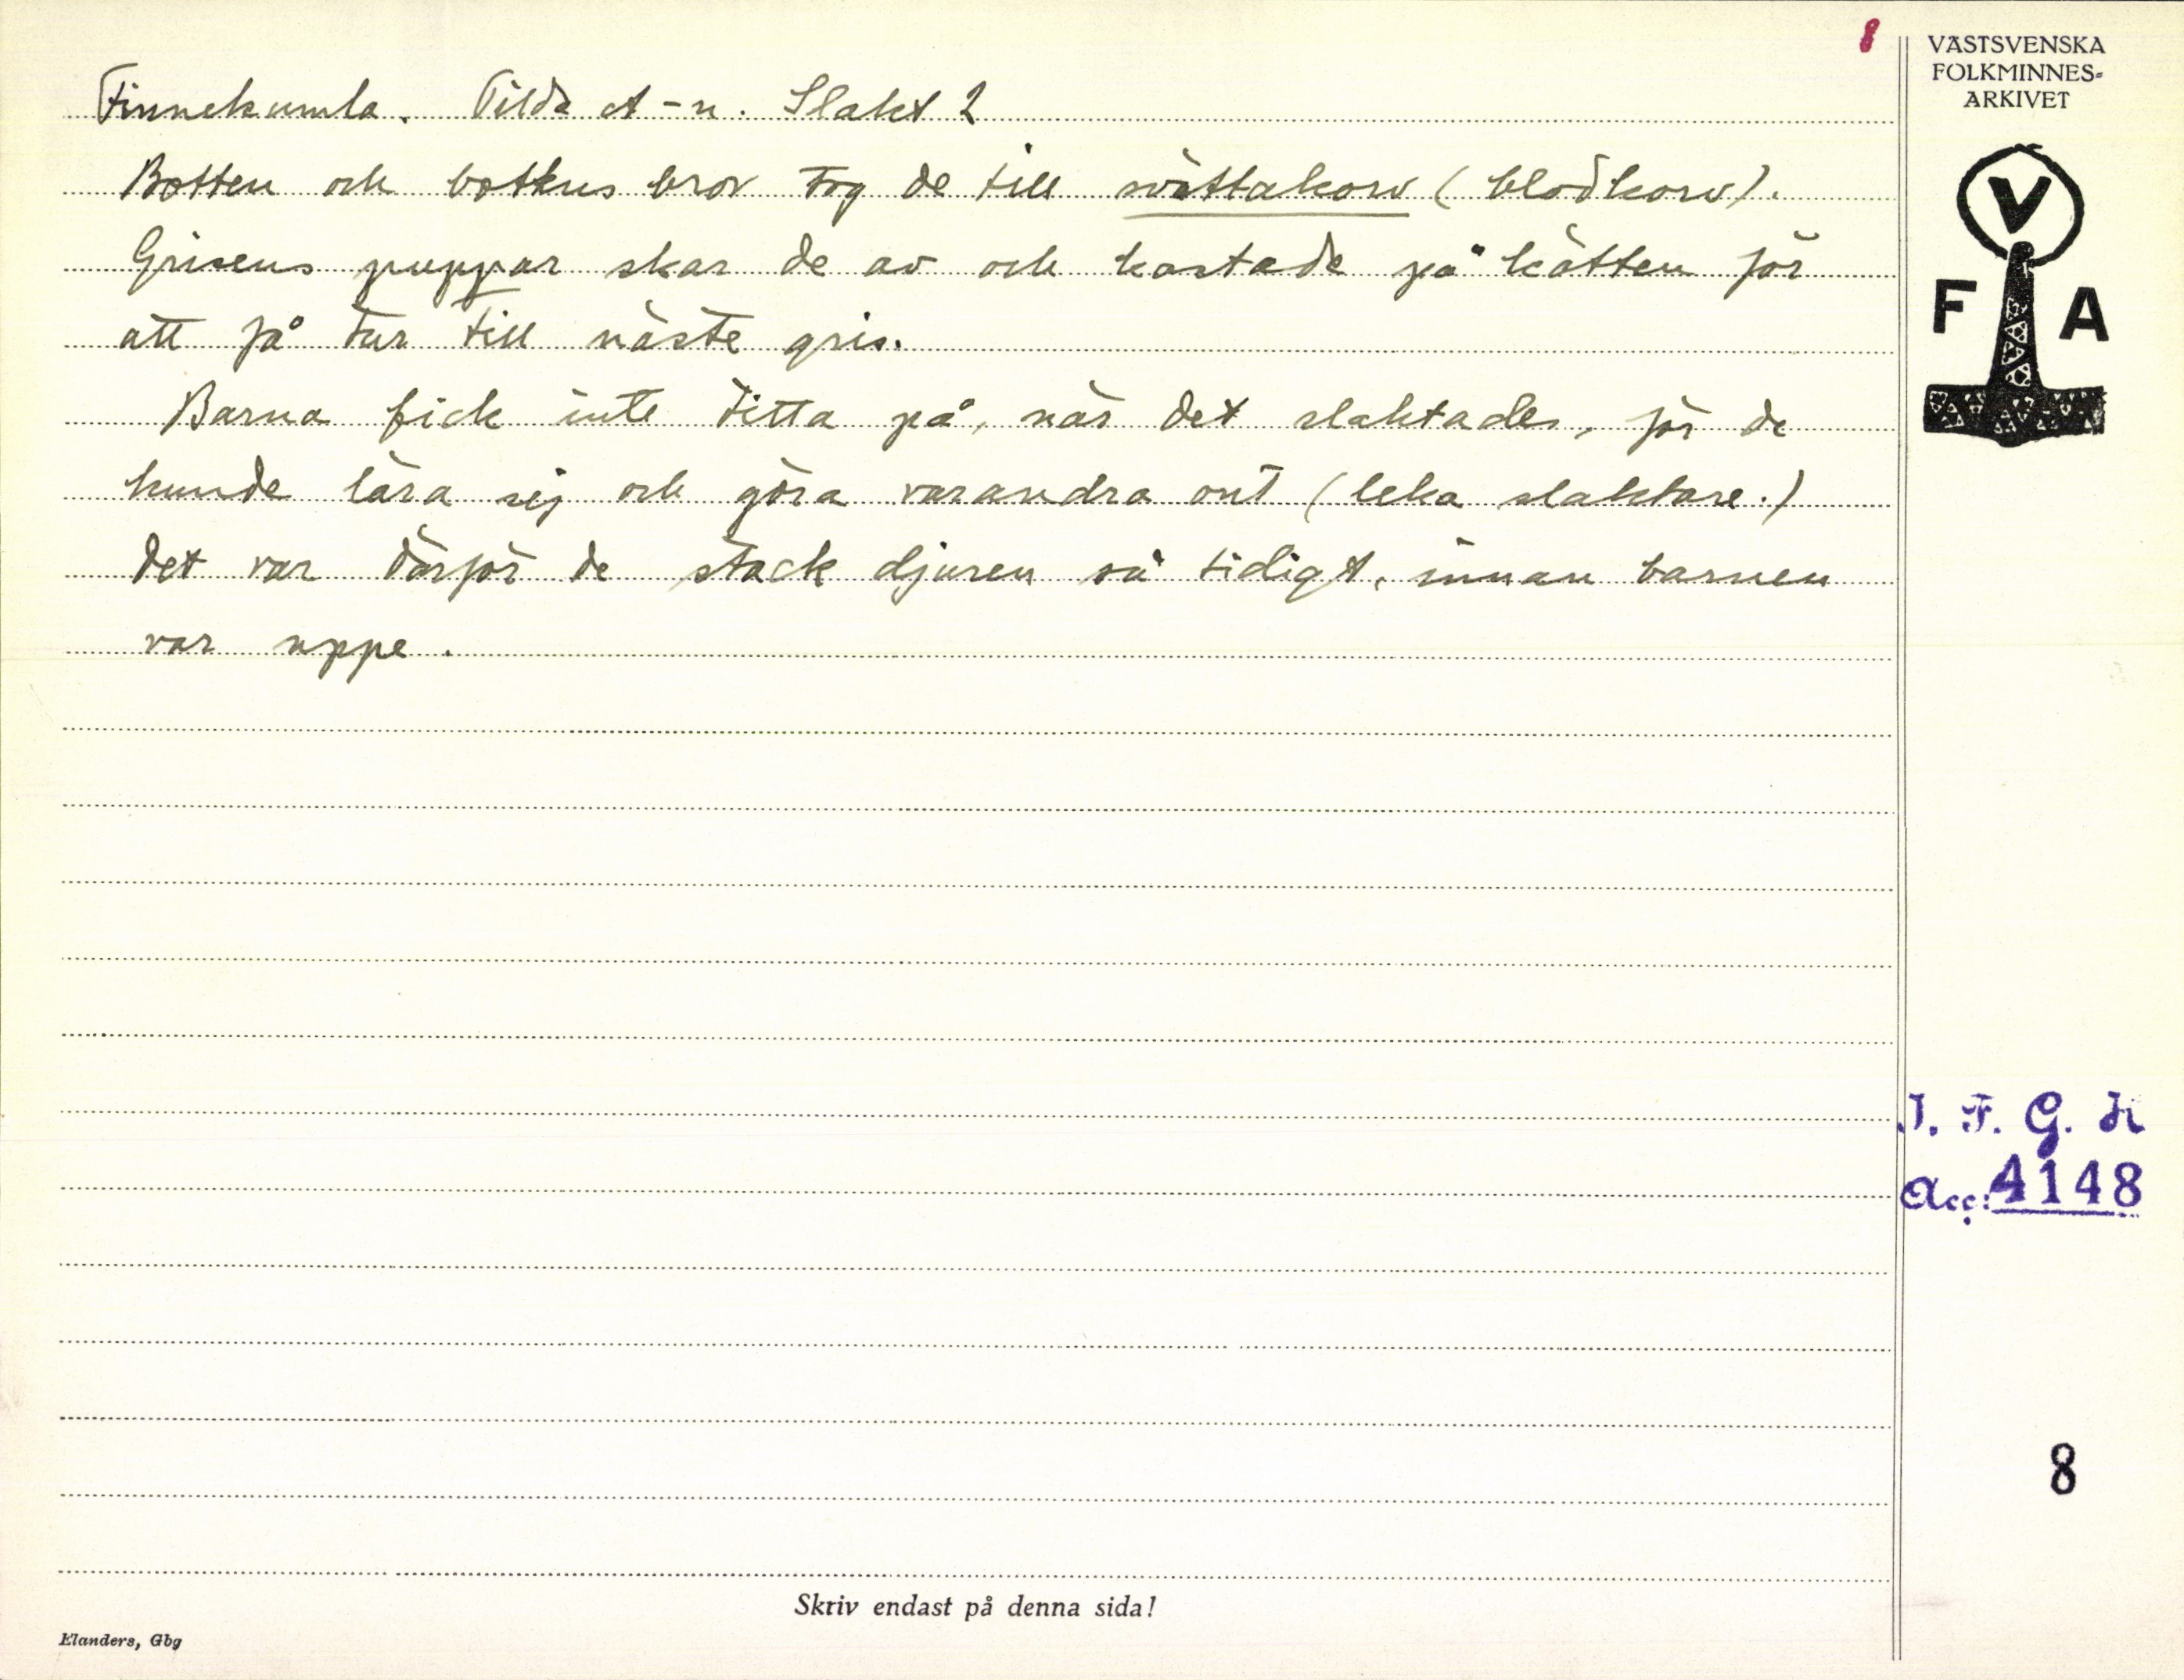 8
VÄSTSVENSKA
FOLKMINNES-
ARKIVET
Finnekumla. Tilda A-n. Slakt 2
Botten och bottens bror tog de till svöttakorv (blodkorv).
Grisens puppar skar de av och kastade på kätten för
att få tur till näste gris.
Barna fick inte titta på, när det slaktades, för de
kunde lära sig och göra varandra ont (leka slaktare.)
Det var därför de stack djuren så tidigt, innan barnen
var uppe.
V
F A
I. F. G. H
Acc: 4148
8
Skriv endast på denna sida!
Elanders, Gbg